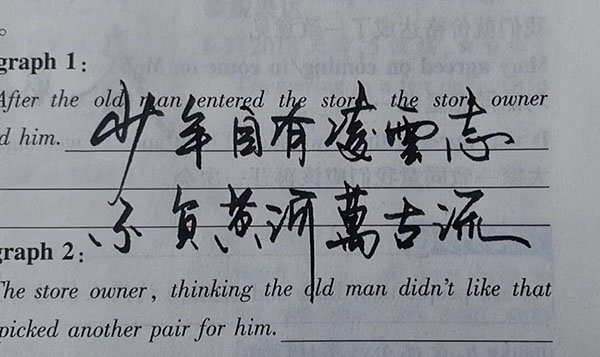 。
graph 1：
After the old man entered the store, the store owner
d him.
少年自有凌雲志
不負黄河萬古流
graph 2：
The store owner, thinking the old man didn't like that
picked another pair for him.